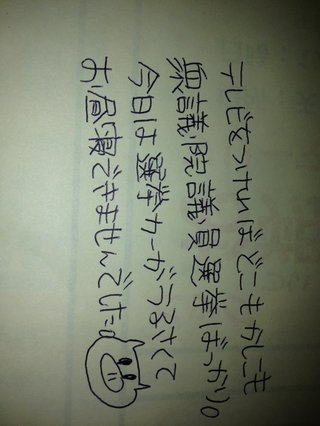 テレビをつければどこもかしこも
衆議院議員選挙ばっかり。
今日は選挙カーがうるさくて
お昼寝できませんでした。